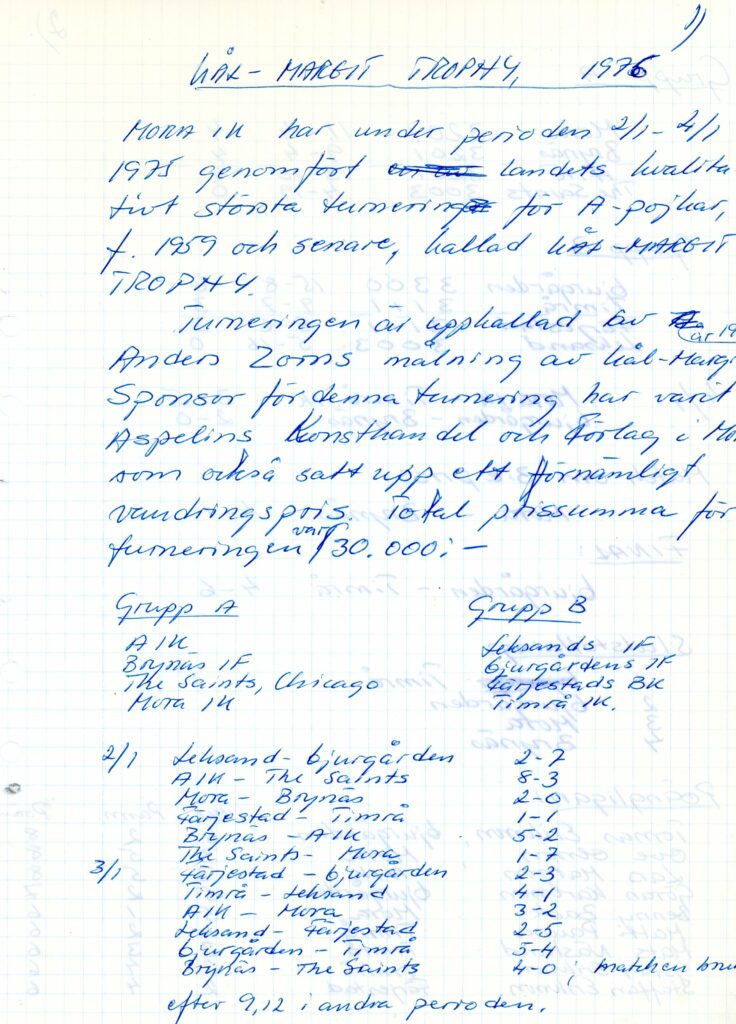 1)
KÅL-MARGIT TROPHY, 1976
MORA IK har under perioden 2/1-4/1
1975 genomfört landets kvalita
tivt största turnering för A-pojkar,
f. 1959 och senare, kallad KÅL-MARGIT
TROPHY.
Turneringen är uppkallad av
är 19
Anders Zorns målning av Kål-Margi
Sponsor för denna turnering har varit
Aspelins Konsthandel och Förlag i Mo
som också satt upp ett förnämligt
vandringspris. Total prissumma för
turneringen var 30.000:-
Grupp A Grupp B
AIK Leksands IF
Brynäs IF Djurgårdens IF
The Saints, Chicago Färjestads BK
Mora IK Timrå IK.
2/1 Leksand - Djurgården 2-7
AIK - The Saints 8-3
Mora - Brynäs 2-0
Färjestad - Timrå 1-1
Brynäs - AIK 5-2
The Saints - Mora 1-7
3/1 Färjestad - Djurgården 2-3
Timrå - Leksand 4-1
AIK - Mora 3-2
Leksand - Färjestad 2-5
Djurgården - Timrå 5-4
Brynäs - The Saints 4-0, matchen bru
efter 9,12 i andra perioden.